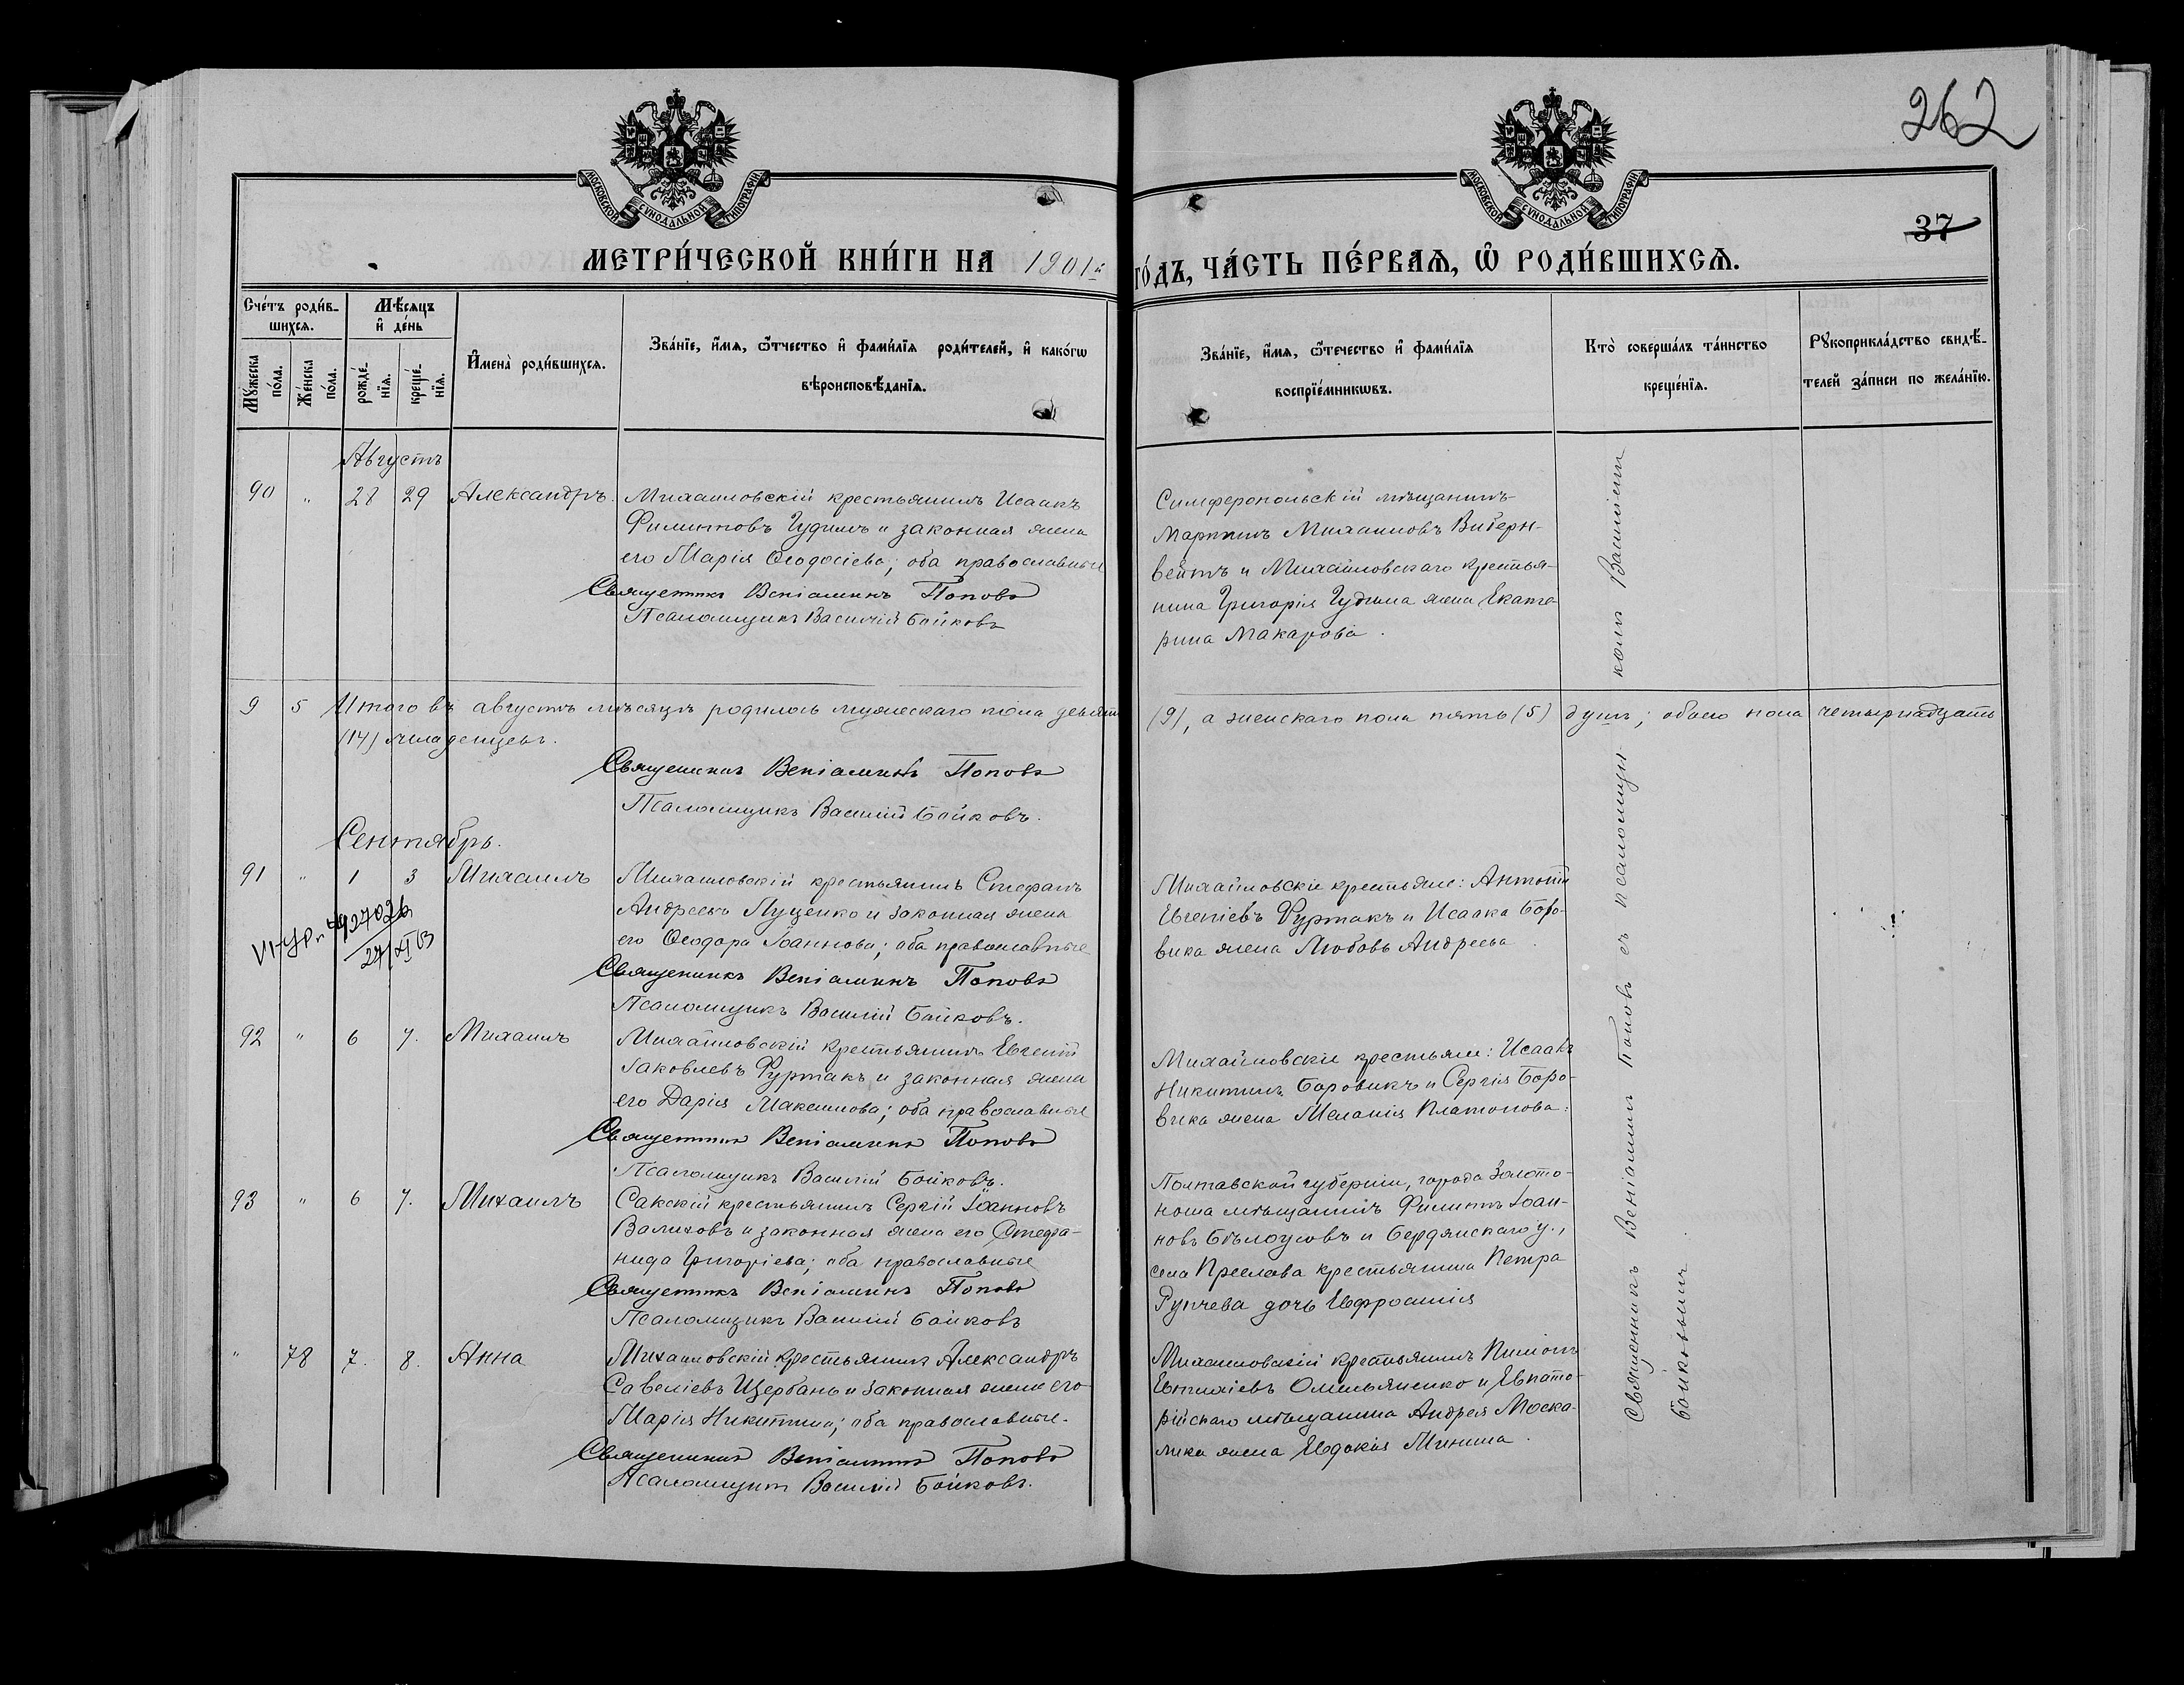 262
37
МОСКОВСКОЙ СѴНОДАЛЬНОЙ ТИПОГРАФІИ
МОСКОВСКОЙ СѴНОДАЛЬНОЙ ТИПОГРАФІИ
МЕТРИ́ЧЕСКОЙ КНИ́ГИ НА 1901й ГО́ДЪ, ЧА́СТЬ ПЕ́РВАѦ, Ѿ РОДИ́ВШИХСѦ.
Сче́тъ роди́в-
шихсѧ.
Мꙋ́жеска по́ла.
Же́нска по́ла.
Мѣ́сѧцъ
и҆ де́нь
рожде́-нїѧ.
креще́-нїѧ.
И҆мена̀ роди́вшихсѧ.
Зва́нїе, и҆́мѧ, ѻ҆́тчество и҆ фами́лїѧ роди́телей, и҆ како́гѡ
вѣроисповѣ́данїѧ.
Зва́нїе, и҆́мѧ, ѻ҆́течество и҆ фами́лїѧ
воспрїе́мникѡвъ.
Кто̀ соверша́лъ та́инство
креще́нїѧ.
Рꙋкоприкла́дство свидѣ́-
телей за́писи по жела́нїю.
Августъ
90 " 28 29 Александръ.
Михайловскій крестьянинъ Исаакъ
Филиповъ Гудимъ и законная жена
его Марія Ѳеодосіева; оба православные
Священникъ Веніаминъ Поповъ
Псаломщикъ Василій Бойковъ
Симферопольскій мѣщанинъ
Мартинъ Михаиловъ Виберн-
вейтъ и Михайловскаго крестья-
нина Григорія Гудима жена Екате-
рина Макарова.
9 5 Итого въ августѣ мѣсяцѣ родилось мужескаго пола девять (9), а женскаго пола пять (5) душъ; обоего пола четырнадцать
(14) младенцевъ.
Священникъ Веніаминъ Поповъ
Псаломщикъ Василій Бойковъ.
Сентябрь.
91 " 1 3 Михаилъ
Михайловскій крестьянинъ Стефанъ
Андреевъ Луценко и законная жена
его Ѳеодора Іоаннова; оба православные
Священникъ Веніаминъ Поповъ
Псаломщикъ Василій Бойковъ.
Михайловскіе крестьяне: Антоній
Евгеніевъ Фуртакъ и Исаака Боро-
вика жена Любовь Андреева.
92 " 6 7. Михаилъ
Михайловскій крестьянинъ Евгеній
Іаковлевъ Фуртакъ и законная жена
его Дарія Максимова; оба православные
Священникъ Веніаминъ Поповъ
Псаломщикъ Василій Бойковъ.
Михайловскіе крестьяне: Исаакъ
Никитинъ Боровикъ и Сергія Боро-
вика жена Меланія Платонова.
93 " 6 7. Михаилъ
Сакскій крестьянинъ Сергій Іоанновъ
Валиховъ и законная жена его Стефа-
нида Григоріева; оба православные
Священникъ Веніаминъ Поповъ
Псаломщикъ Василій Бойковъ
Полтавской губерніи, города Золото-
ноша мѣщанинъ Филиппъ Іоан-
новъ Бѣлоусовъ и Бердянскаго у.,
села Преслава крестьянина Петра
Рупчева дочь Евфросинія
" 78 7. 8. Анна
Михайловскій крестьянинъ Александръ
Савеліевъ Щербань и законная жена его
Марія Никитина; оба православные.
Священникъ Веніаминъ Поповъ
Псаломщикъ Василій Бойковъ.
Михайловскій крестьянинъ Пименъ
Евтихіевъ Омельяненко и Евпато-
рійскаго мѣщанина Андрея Моска-
лика жена Евдокія Минина.
Священникъ Веніаминъ Поповъ съ псаломщи- комъ Василіемъ
Бойковымъ.